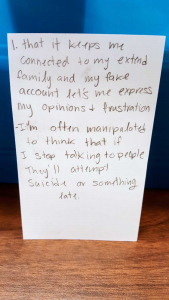 1. that it keeps me
connected to my extend
family and my fake
account lets me express
my opinions + frustration
- I'm often manipulated
to think that if
I stop talking to people
They'll attempt
Suicide or something